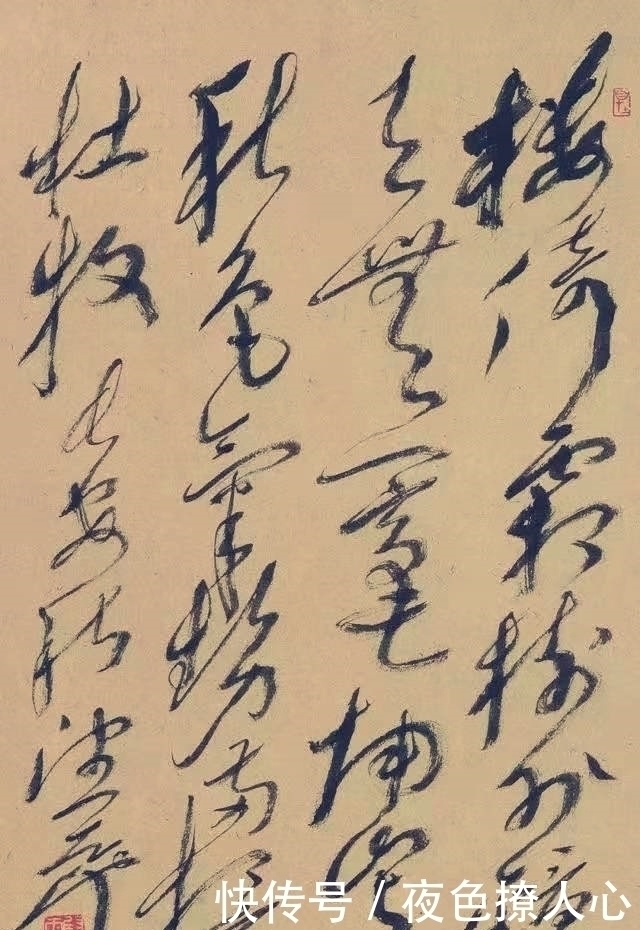 樓倚霜樹外鏡
天無一毫南山
秋色氣勢兩相
杜牧長安秋望
快传号 / 夜色撩人心